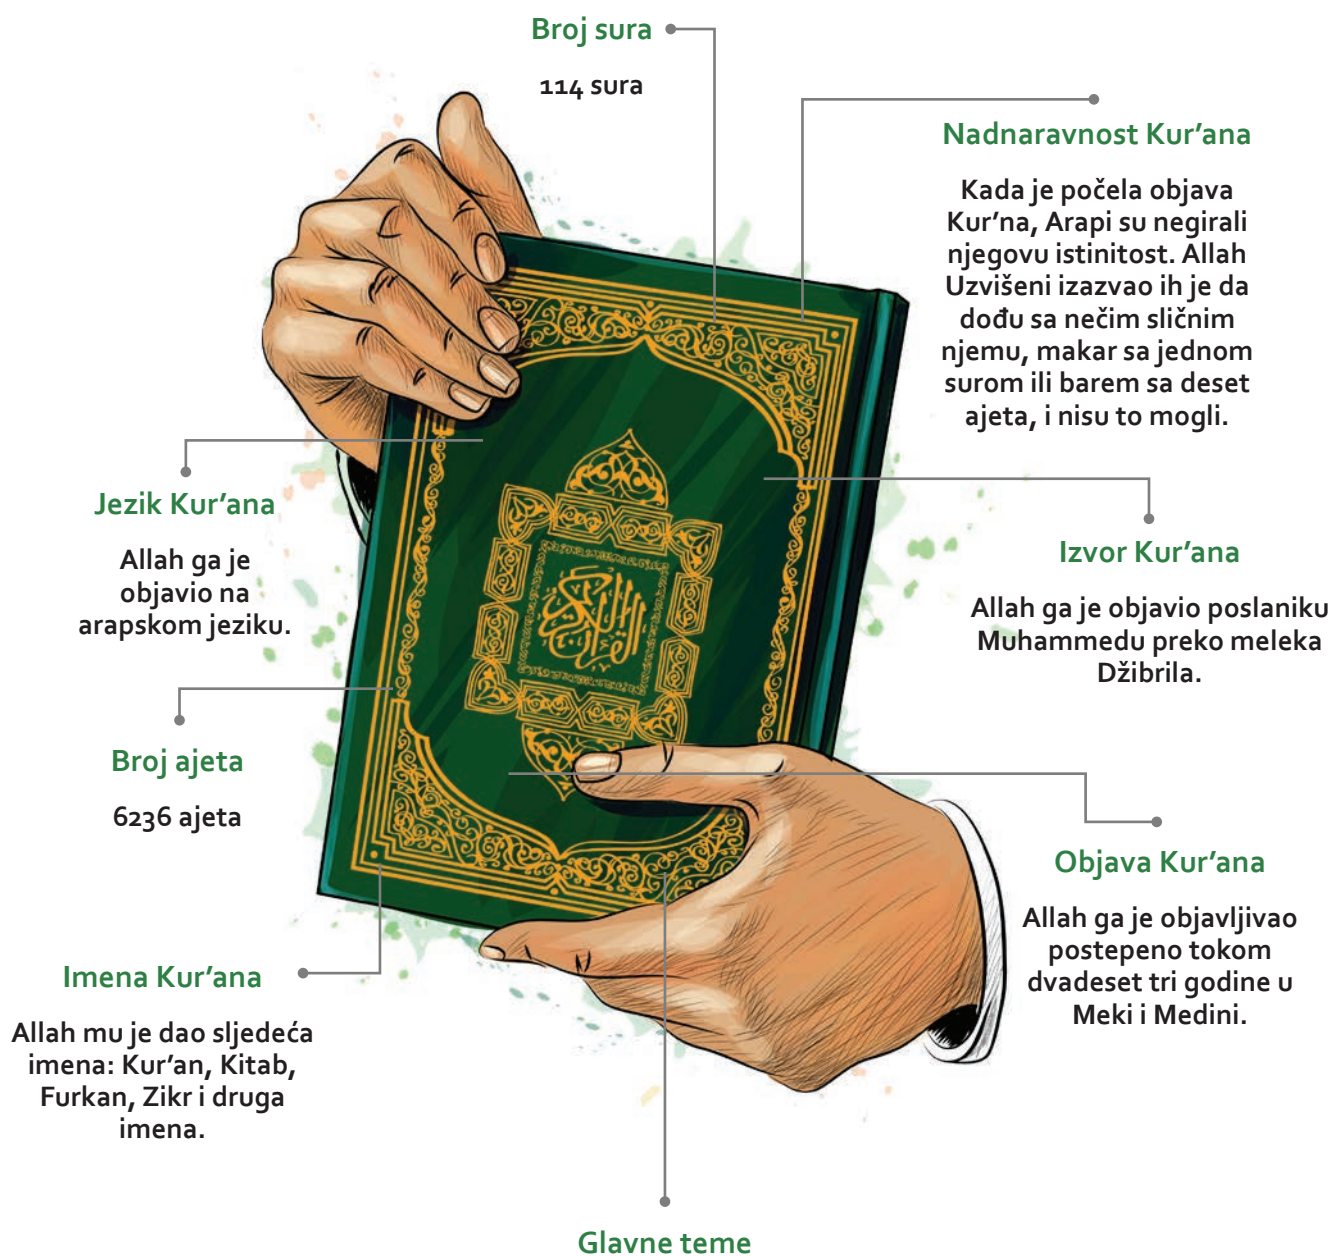 Broj sura
114 sura
Nadnaravnost Kur’ana
Kada je počela objava
Kur’na, Arapi su negirali
njegovu istinitost. Allah
Uzvišeni izazvao ih je da
dođu sa nečim sličnim
njemu, makar sa jednom
surom ili barem sa deset
ajeta, i nisu to mogli.
Jezik Kur’ana
Allah ga je
objavio na
arapskom jeziku.
Izvor Kur’ana
Allah ga je objavio poslaniku
Muhammedu preko meleka
Džibrila.
القرآن الكريم
Broj ajeta
6236 ajeta
Objava Kur’ana
Allah ga je objavljivao
postepeno tokom
dvadeset tri godine u
Meki i Medini.
Imena Kur’ana
Allah mu je dao sljedeća
imena: Kur’an, Kitab,
Furkan, Zikr i druga
imena.
Glavne teme